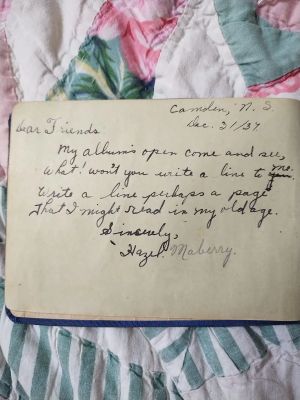 Camden, N. S.
Dec. 31/37
Dear Friends
My album's open come and see,
What: won't you write a line to you. me.
Write a line perhaps a page
That I might read in my old age.
Sincerely,
Hazel. Maberry.